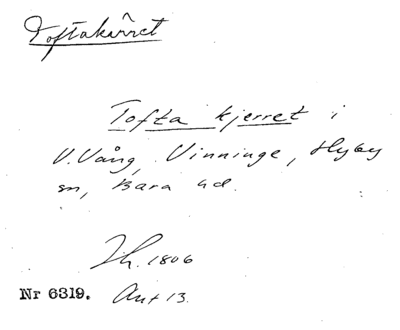 Toftakärret
Tofta kjerret i
V. Vång Vinninge, Hyby
sn, Bara hd.
1806
Nr 6319. Ant 13.